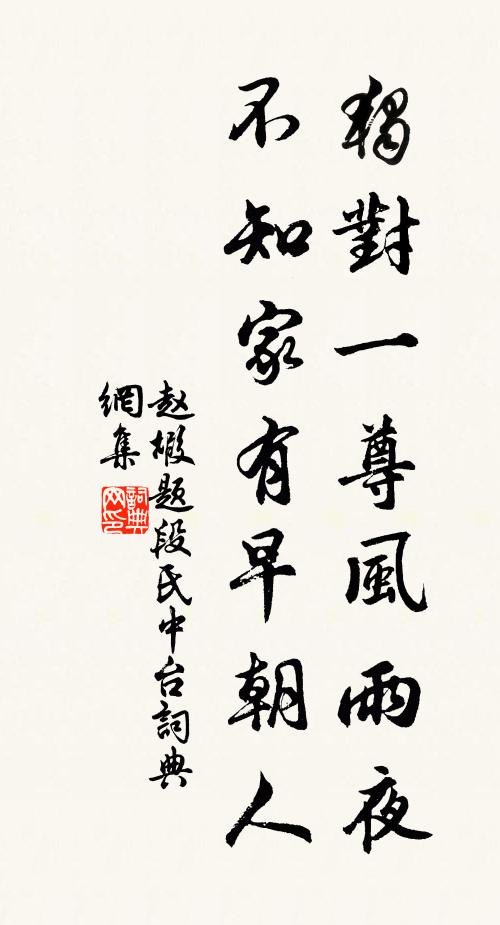 獨對一尊風雨夜
不知家有早朝人
赵嘏题段氏中台詞典
網集
詞典
网印